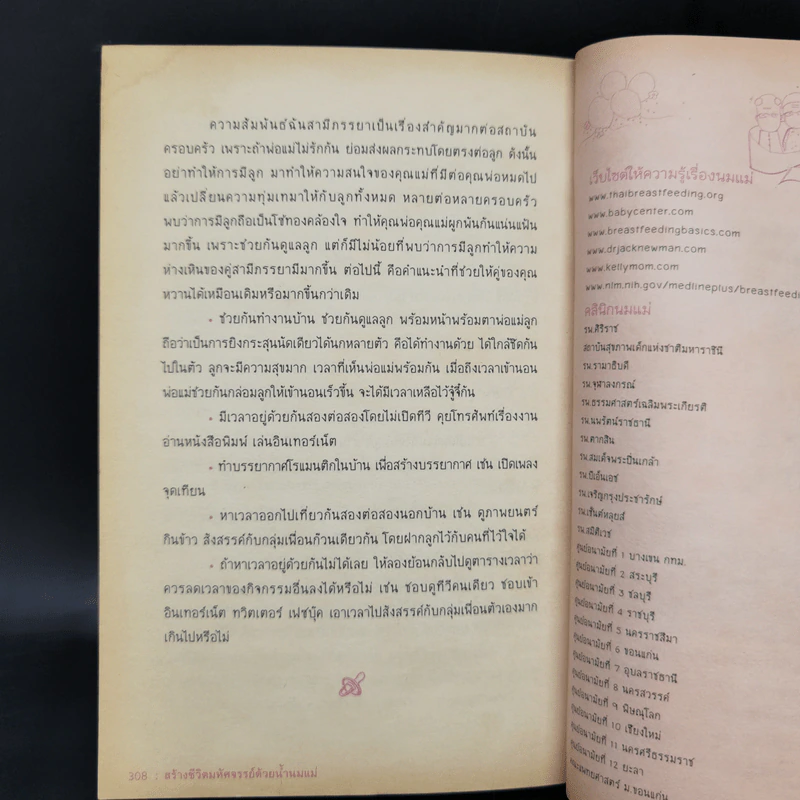 ความสัมพันธ์ฉันสามีภรรยาเป็นเรื่องสำคัญมากต่อสถาบัน
ครอบครัว เพราะถ้าพ่อแม่ไม่รักกัน ย่อมส่งผลกระทบโดยตรงต่อลูก ดังนั้น
อย่าทำให้การมีลูก มาทำให้ความสนใจของคุณแม่ที่มีต่อคุณพ่อหมดไป
แล้วเปลี่ยนความทุ่มเทมาให้กับลูกทั้งหมด หลายต่อหลายครอบครัว
พบว่าการมีลูกถือเป็นโซ่ทองคล้องใจ ทำให้คุณพ่อคุณแม่ผูกพันกันแน่นแฟ้น
มากขึ้น เพราะช่วยกันดูแลลูก แต่ก็มีไม่น้อยที่พบว่าการมีลูกทำให้ความ
ห่างเหินของคู่สามีภรรยามีมากขึ้น ต่อไปนี้ คือคำแนะนำที่ช่วยให้คู่ของคุณ
หวานได้เหมือนเดิมหรือมากขึ้นกว่าเดิม
• ช่วยกันทำงานบ้าน ช่วยกันดูแลลูก พร้อมหน้าพร้อมตาพ่อแม่ลูก
ถือว่าเป็นการยิงกระสุนนัดเดียวได้นกหลายตัว คือได้ทำงานด้วย ได้ใกล้ชิดกัน
ไปในตัว ลูกจะมีความสุขมาก เวลาที่เห็นพ่อแม่พร้อมกัน เมื่อถึงเวลาเข้านอน
พ่อแม่ช่วยกันกล่อมลูกให้เข้านอนเร็วขึ้น จะได้มีเวลาเหลือไว้จู๋จี๋กัน
• มีเวลาอยู่ด้วยกันสองต่อสองโดยไม่เปิดทีวี คุยโทรศัพท์เรื่องงาน
อ่านหนังสือพิมพ์ เล่นอินเทอร์เน็ต
• ทำบรรยากาศโรแมนติกในบ้าน เพื่อสร้างบรรยากาศ เช่น เปิดเพลง
จุดเทียน
• หาเวลาออกไปเที่ยวกันสองต่อสองนอกบ้าน เช่น ดูภาพยนตร์
กินข้าว สังสรรค์กับกลุ่มเพื่อนก๊วนเดียวกัน โดยฝากลูกไว้กับคนที่ไว้ใจได้
• ถ้าหาเวลาอยู่ด้วยกันไม่ได้เลย ให้ลองย้อนกลับไปดูตารางเวลาว่า
ควรลดเวลาของกิจกรรมอื่นลงได้หรือไม่ เช่น ชอบดูทีวีคนเดียว ชอบเข้า
อินเทอร์เน็ต ทวิตเตอร์ เฟซบุ๊ค เอาเวลาไปสังสรรค์กับกลุ่มเพื่อนตัวเองมาก
เกินไปหรือไม่
308 : สร้างชีวิตมหัศจรรย์ด้วยน้ำนมแม่
เว็บไซต์ให้ความรู้เรื่องนมแม่
www.thaibreastfeeding.org
www.babycenter.com
www.breastfeedingbasics.com
www.drjacknewman.com
www.kellymom.com
www.nlm.nih.gov/medlineplus/breastfeedi
คลินิกนมแม่
รพ.ศิริราช
สถาบันสุขภาพเด็กแห่งชาติมหาราชินี
รพ.รามาธิบดี
รพ.จุฬาลงกรณ์
รพ.ธรรมศาสตร์เฉลิมพระเกียรติ
รพ.นพรัตน์ราชธานี
รพ.ตากสิน
รพ.สมเด็จพระปิ่นเกล้า
รพ.บีเอ็นเอช
รพ.เจริญกรุงประชารักษ์
รพ.เซ็นต์หลุยส์
รพ.สมิติเวช
ศูนย์อนามัยที่ 1 บางเขน กทม.
ศูนย์อนามัยที่ 2 สระบุรี
ศูนย์อนามัยที่ 3 ชลบุรี
ศูนย์อนามัยที่ 4 ราชบุรี
ศูนย์อนามัยที่ 5 นครราชสีมา
ศูนย์อนามัยที่ 6 ขอนแก่น
ศูนย์อนามัยที่ 7 อุบลราชธานี
ศูนย์อนามัยที่ 8 นครสวรรค์
ศูนย์อนามัยที่ 9 พิษณุโลก
ศูนย์อนามัยที่ 10 เชียงใหม่
ศูนย์อนามัยที่ 11 นครศรีธรรมราช
ศูนย์อนามัยที่ 12 ยะลา
ม.ขอนแก่น